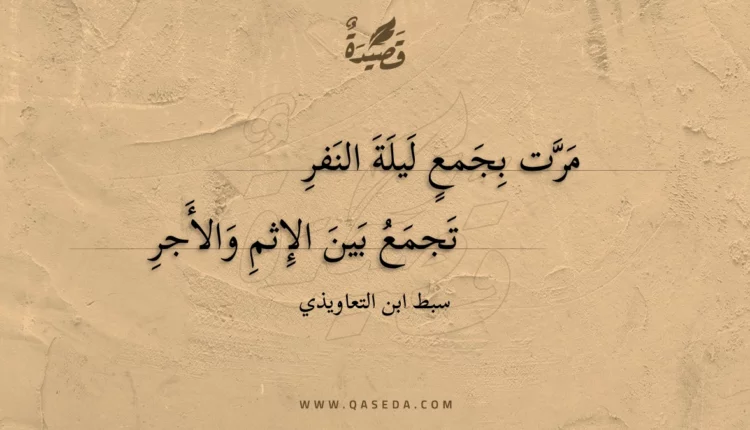 قَصِيْدَةٌ
مَرَّت بِجَمعٍ لَيلَةَ النَفرِ
تَجمَعُ بَينَ الإِثمِ وَالأَجرِ
سبط ابن التعاويذي
WWW.QASEDA.COM